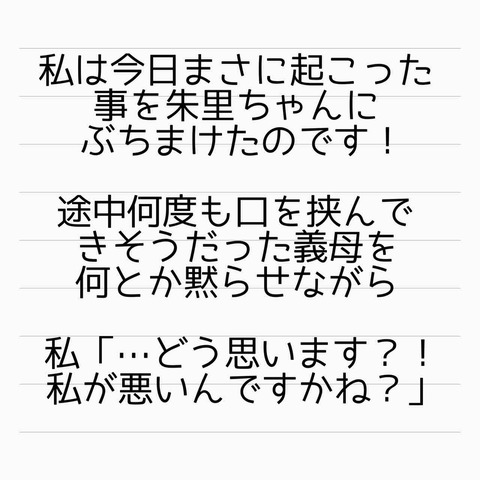 私は今日まさに起こった
事を朱里ちゃんに
ぶちまけたのです！
途中何度も口を挟んで
きそうだった義母を
何とか黙らせながら
私「…どう思います？！
私が悪いんですかね？」